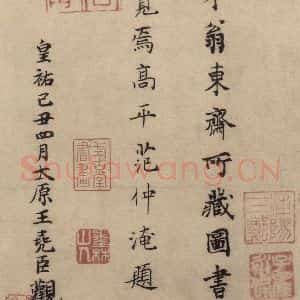 翁東齋所藏圖書
覽焉高平范仲淹題
皇祐己丑四月太原王堯臣觀
Shufawang.CN